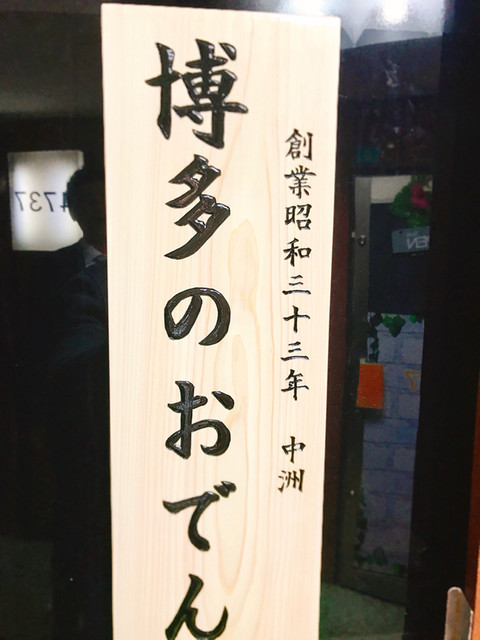 創業昭和三十三年 中洲
博多のおでん
4737